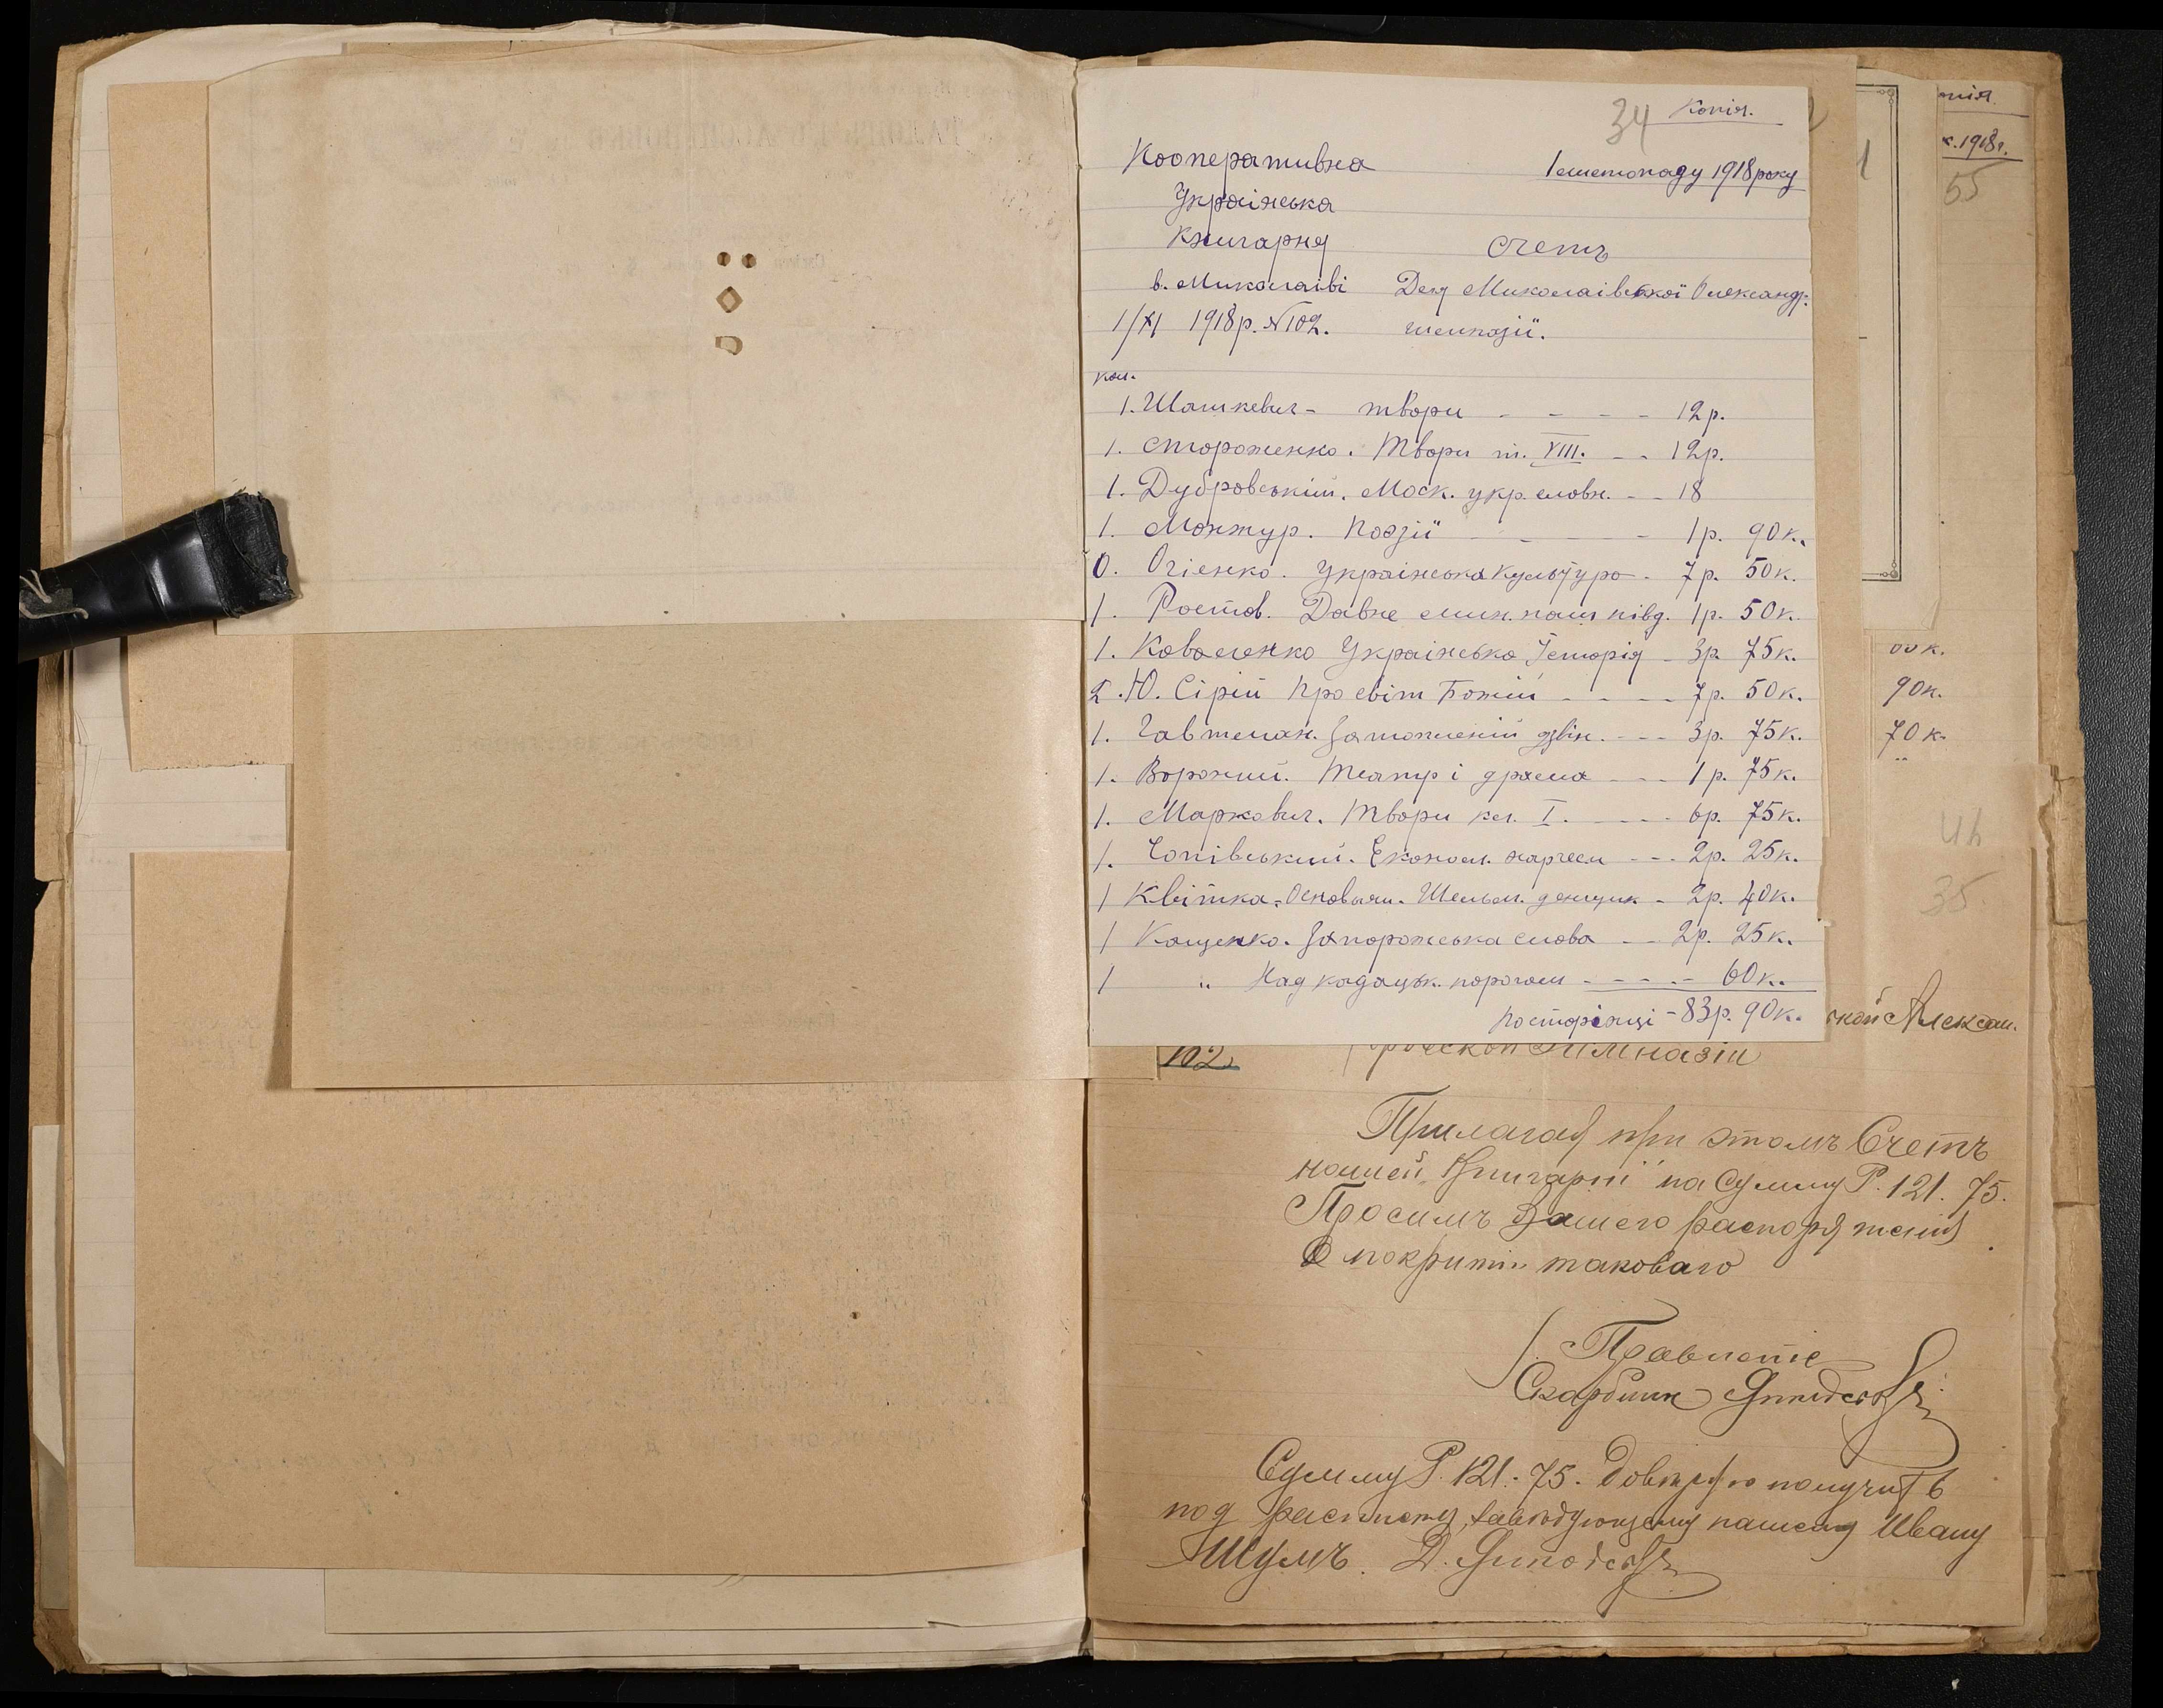 34 Копія.
Кооперативна 1 листопаду 1918 року
Українська
Книгарня Счетъ
в. Миколаіві Для Миколаівської Олександр.
1/XI 1918 р. №102. гимназії.
1. Шашкевич - твори - - - - 12 р.
1. Стороженко. Твори т. VIII. - - 12 р.
1. Дубровський. Моск. укр. словн. - - 18
1. Манжур. Поезії - - - - 1 р. 90 к.
0. Огіенко. Українська культура - 7 р. 50 к.
1. Ростов. Давне мин. наш півд. 1 р. 50 к.
1. Коваленко Українська Історія - 3 р. 75 к.
2. Ю. Сірий Про світ Божий - - - - 7 р. 50 к.
1. Гавтман. Затоплений дзвін. - - - 3 р. 75 к.
1. Вороний. Театр і драма - - - 1 р. 75 к.
1. Маркович. Твори кн. I. - - - - 6 р. 75 к.
1. Чопівський. Економ. нариси - - - 2 р. 25 к.
1 Квітка-Основьян. Шельм. денщик - 2 р. 40 к.
1 Кащенко. Запорожська слава - - 2 р. 25 к.
1 " Над кадацьк. порогом - - - - - 60 к.
По сторінці - 83 р. 90 к.
пія.
1918 г.
55
00 к.
90 к.
70 к.
35
ской Алексан.
102 Гимназіи
Прилагая при этомъ Счетъ
нашей "Книгарні" на Сумму Р. 121. 75.
Просимъ Вашего распоряженія
о покритіи таковаго
Правленіе
Скарбник
Сумму Р. 121. 75. Довѣряю получить
под расписку, завѣдующему нашему Ивану
Шумъ. Д.